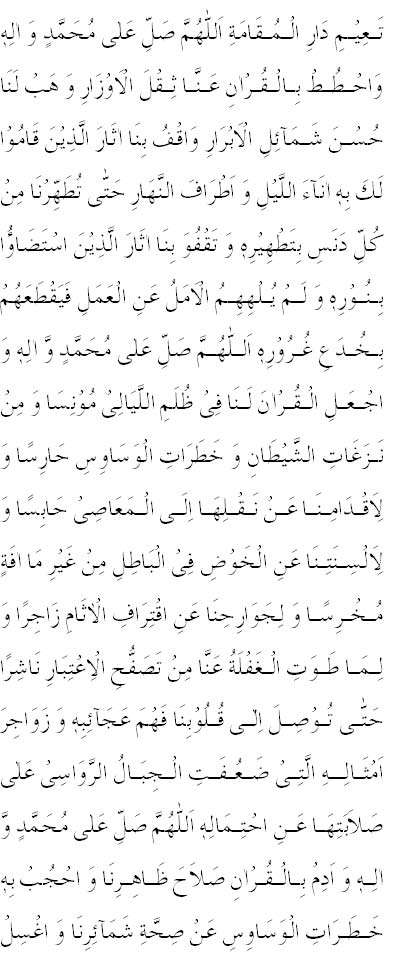 نَعِيْمِ دَارِ الْمُقَامَةِ اَللّٰهُمَّ صَلِّ عَلٰى مُحَمَّدٍ وَ اٰلِهٖ
وَاحْطُطْ بِالْقُرْاٰنِ عَنَّا ثِقْلَ الْاَوْزَارِ وَ هَبْ لَنَا
حُسْنَ شَمَآئِلِ الْاَبْرَارِ وَاقْفُ بِنَا اٰثَارَ الَّذِيْنَ قَامُوْا
لَكَ بِهٖ اٰنَآءَ اللَّيْلِ وَ اَطْرَافَ النَّهَارِ حَتّٰى تُطَهِّرْنَا مِنْ
كُلِّ دَنَسٍ بِتَطْهِيْرِهٖ وَ تَقْفُوَ بِنَا اٰثَارَ الَّذِيْنَ اسْتَضَاؤُا
بِنُوْرِهٖ وَ لَمْ يُلْهِهِمُ الْاَمَلُ عَنِ الْعَمَلِ فَيَقْطَعَهُمْ
بِخُدَعِ غُرُوْرِهٖ اَللّٰهُمَّ صَلِّ عَلٰى مُحَمَّدٍ وَّ اٰلِهٖ وَ
اجْعَلِ الْقُرْاٰنَ لَنَا فِىْ ظُلَمِ اللَّيَالِىْ مُوْنِسًا وَ مِنْ
نَزَغَاتِ الشَّيْطَانِ وَ خَطَرَاتِ الْوَسَاوِسِ حَارِسًا وَ
لِاَقْدَامِنَا عَنْ نَقْلِهَا اِلَى الْمَعَاصِىْ حَابِسًا وَ
لِاَلْسِنَتِنَا عَنِ الْخَوْضِ فِى الْبَاطِلِ مِنْ غَيْرِ مَا اٰفَةٍ
مُخْرِسًا وَ لِجَوَارِحِنَا عَنِ اقْتِرَافِ الْاٰثَامِ زَاجِرًا وَ
لِمَا طَوَتِ الْغَفْلَةُ عَنَّا مِنْ تَصَفُّحِ الْاِعْتِبَارِ نَاشِرًا
حَتّٰى تُوْصِلَ اِلٰى قُلُوْبِنَا فَهْمَ عَجَآئِبِهٖ وَ زَوَاجِرَ
اَمْثَالِهِ الَّتِىْ ضَعُفَتِ الْجِبَالُ الرَّوَاسِىْ عَلٰى
صَلَابَتِهَا عَنِ احْتِمَالِهٖ اَللّٰهُمَّ صَلِّ عَلٰى مُحَمَّدٍ وَّ
اٰلِهٖ وَ اَدِمْ بِالْقُرْاٰنِ صَلَاحَ ظَاهِرِنَا وَ احْجُبْ بِهٖ
خَطَرَاتِ الْوَسَاوِسِ عَنْ صِحَّةِ ضَمَآئِرِنَا وَ اغْسِلْ